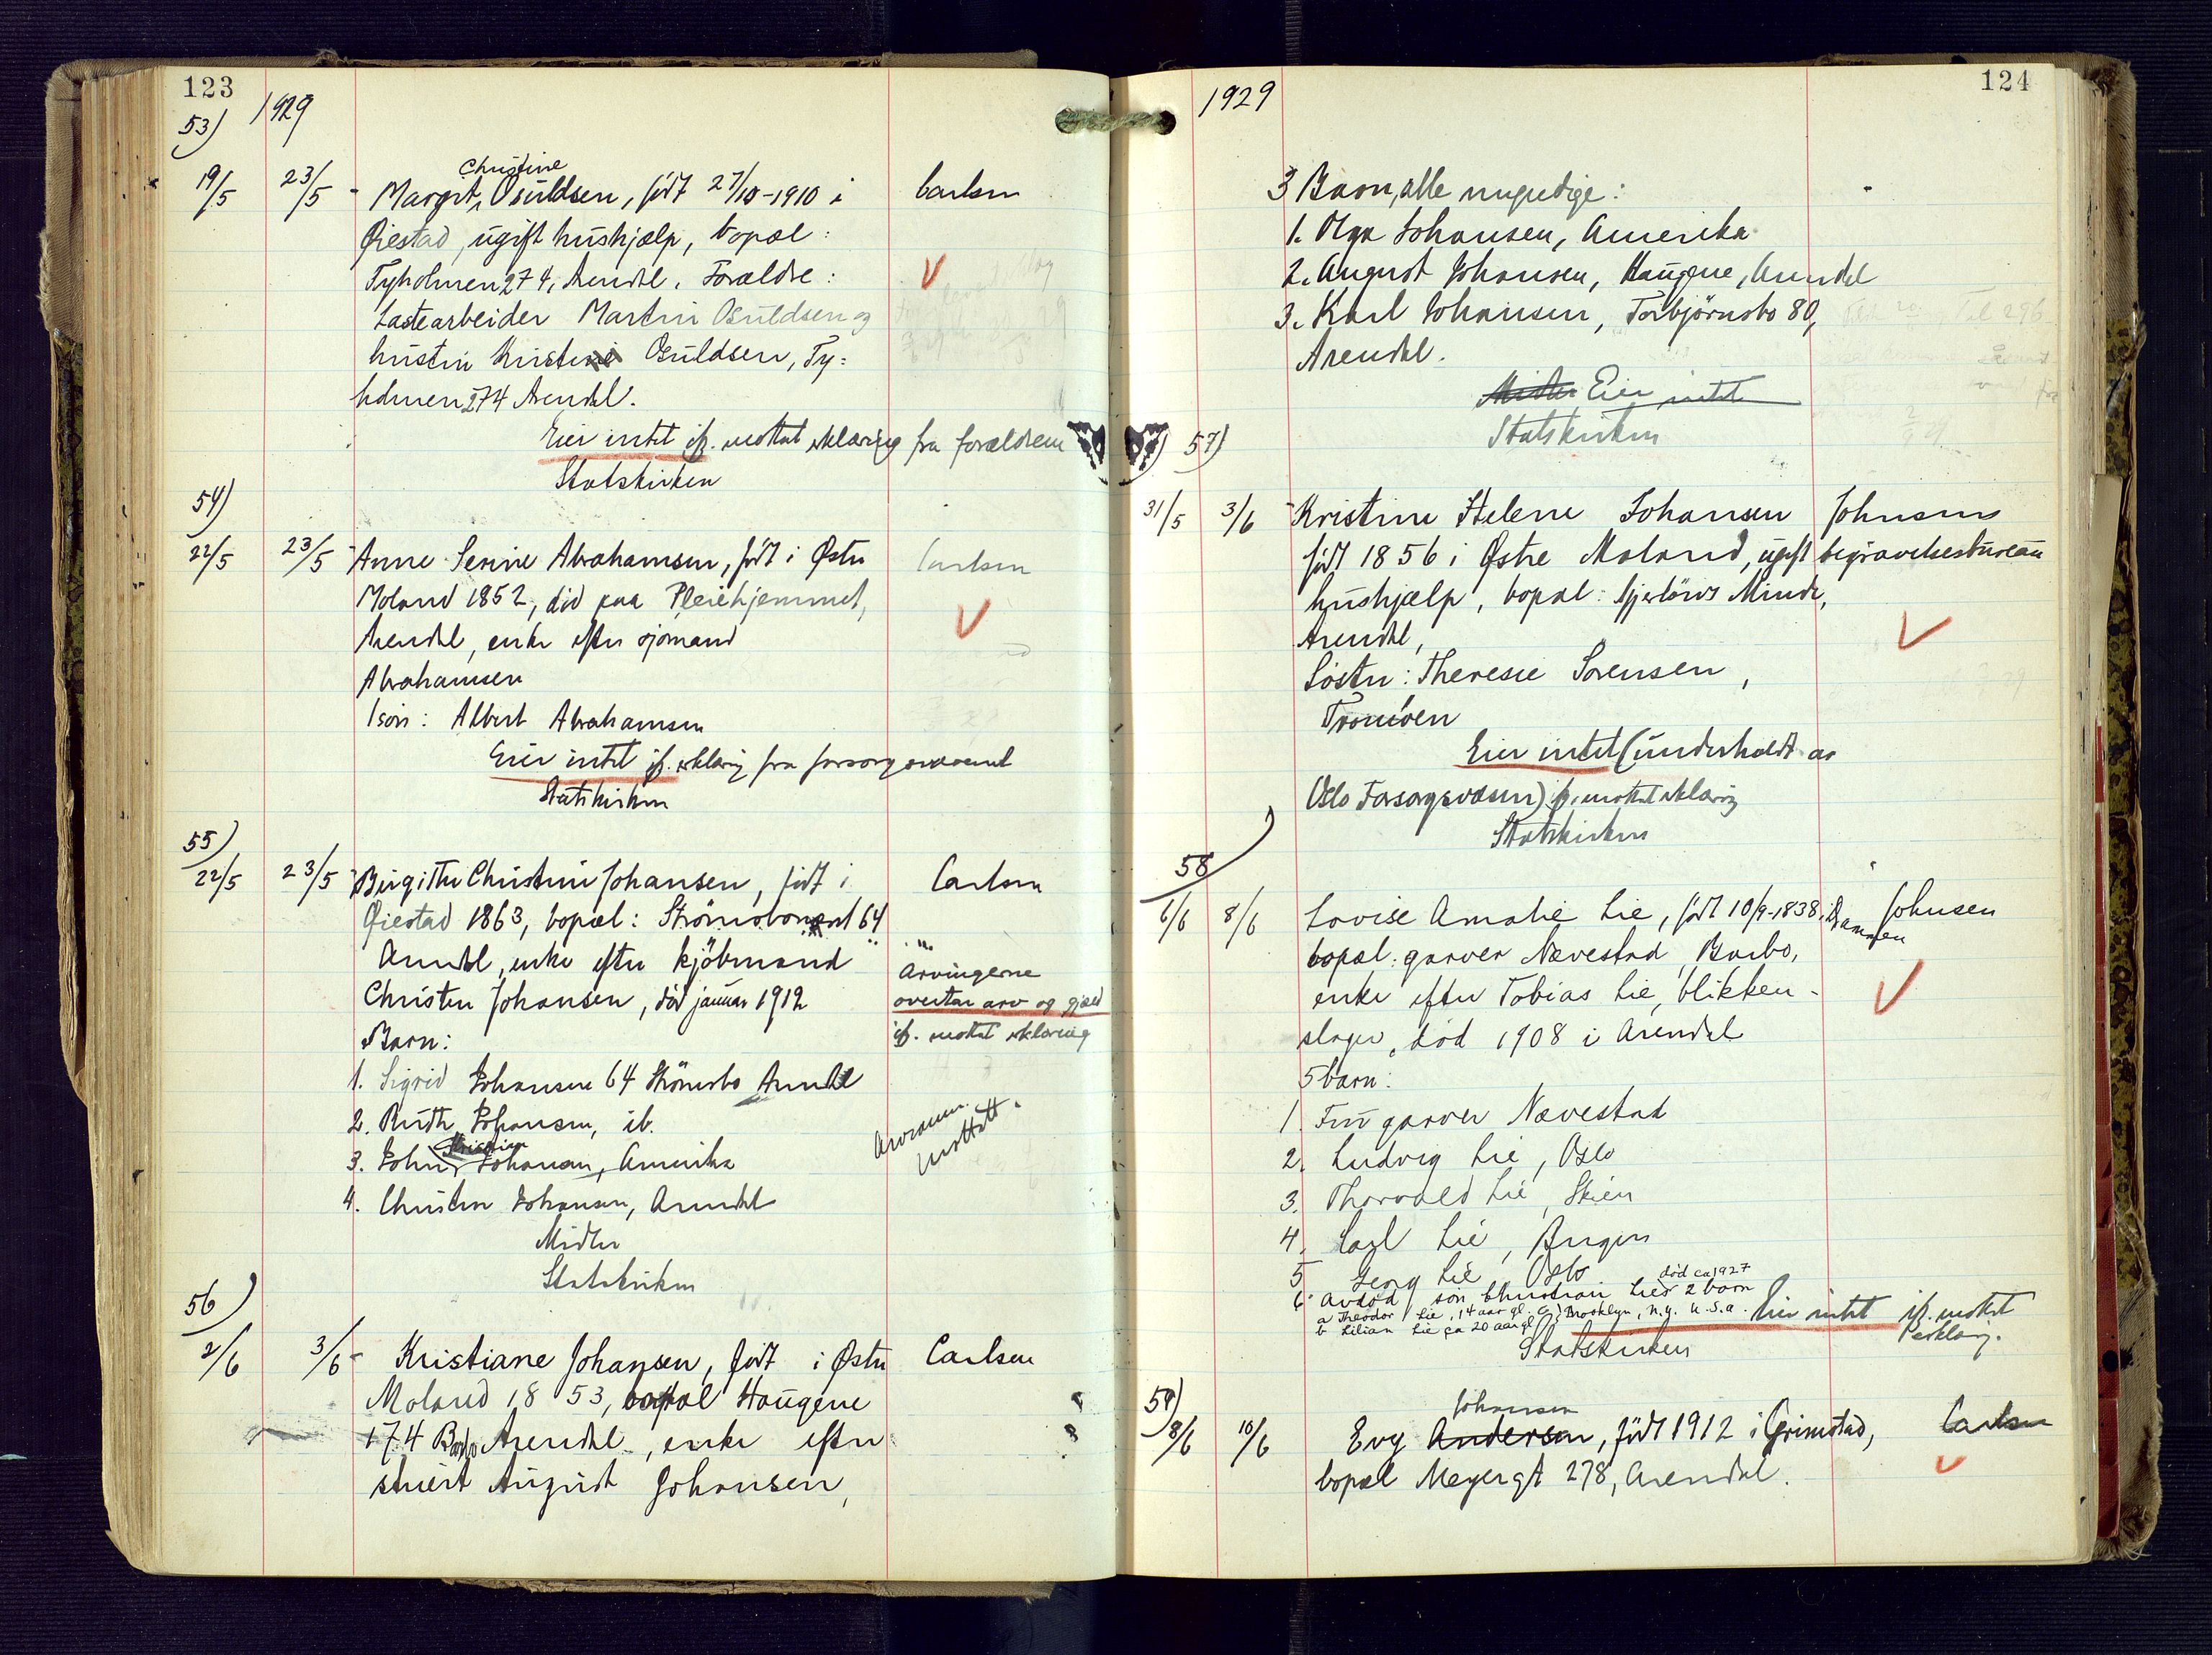 123
1929
53)
Christine
19/5 23/5 - Margit Osuldsen, født 27/10-1910 i Carlsen
Øiestad, ugift hushjælp, bopæl:
Tyholmen 274, Arendal. Forældre:
Lastearbeider Martin Osuldsen og
hustru Kristine Osuldsen, Ty=
holmen 274 Arendal.
Eier intet jf. mottat erklæring fra forældrene
Statskirken
54)
22/5 23/5 - Anne Serine Abrahamsen, født i Østre Carlsen
Moland 1852, død paa Pleiehjemmet,
Arendal, enke efter sjømand
Abrahamsen
1 søn: Albert Abrahamsen
Eier intet jf. erklæring fra forsorgsvæsenet
Statskirken
55)
22/5 23/5 - Birgitte Christine Johansen, født i Carlsen
Øiestad 1863, bopæl: Strømsbo 64
Arendal, enke efter kjøbmand
Christen Johansen, død januar 1912
Arvingerne
overtar arv og gjæld
jf. mottat erklæring
Barn:
1. Sigrid Johansen 64 Strømsbo Arendal
2. Ruth Johansen, ib.
3. John Johansen, Amerika
4. Christen Johansen, Arendal
mottatt.
Midler
Statskirken
56)
2/6 3/6 - Kristiane Johansen, født i Østre Carlsen
Moland 1853, bopæl Haugene
174 Barbo Arendal, enke efter
stuert August Johansen,
124
1929
3 Barn, alle myndige:
1. Olga Johansen, Amerika
2. August Johansen, Haugene, Arendal
3. Karl Johansen, Torbjørnsbo 80,
Arendal.
Midler Eier intet
Statskirken
57)
31/5 3/6 - Kristine Helene Johansen Johnsens
født 1856 i Østre Moland, ugift begravelsesbureau
hushjælp, bopæl: Minde,
Arendal,
Søster: Theresie Sørensen,
Tromøen
Eier intet (underholdt av
Oslo Forsorgsvæsen) jf. mottat erklæring
Statskirken
58
6/6 8/6 Lovise Amalie Lie, født 10/9-1838, i Drammen Johnsen
bopæl: garver Nævestad, Barbo,
enke efter Tobias Lie, blikken-
slager, død 1908 i Arendal
5 barn:
1. Fru garver Nævestad
2. Ludvig Lie, Oslo
3. Thorvald Lie, Skien
4. Carl Lie, Bergen
5 Georg Lie, Oslo
død ca 1927
6. avdød søn Christian Lies 2 barn
a Theodor Lie, 14 aar gl. Brooklyn, N.Y. U.S.A.
b Lilian Lie ca 20 aar gl.
Eier intet jf. mottat erklæring.
Statskirken
59)
Johansen
8/6 10/6 Evy Andersen, født 1912 i Grimstad, Carlsen
bopæl Meyergt 278, Arendal.